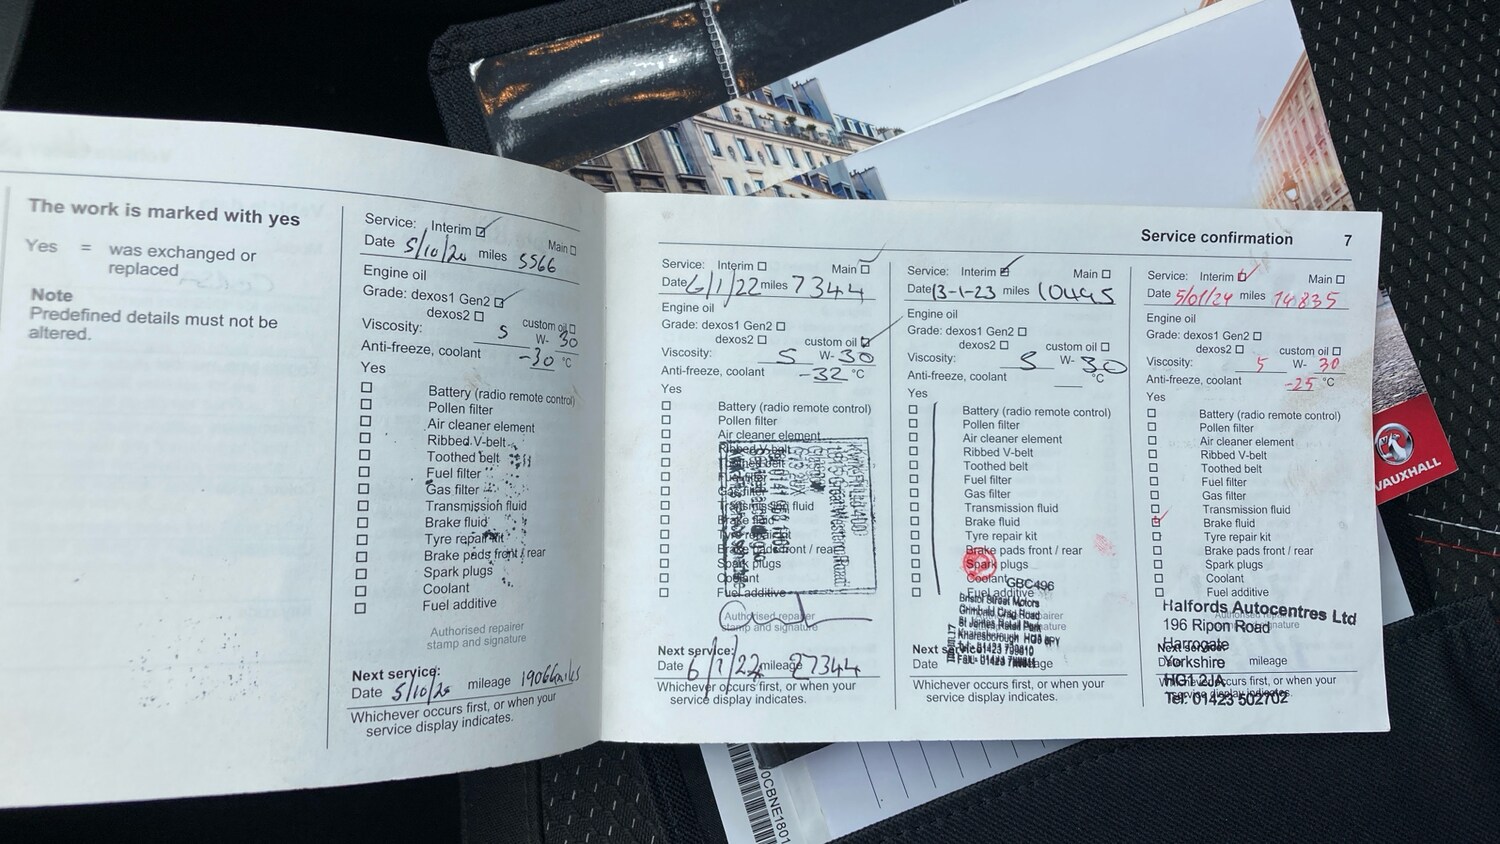 The work is marked with yes
Yes = was exchanged or
replaced
Note
Predefined details must not be
altered.
Service: Interim Main
Date 5/10/20 miles 5566
Engine oil
Grade: dexos1 Gen2
dexos2 custom oil
Viscosity: 5 W- 30
Anti-freeze, coolant -30 °C
Yes
Battery (radio remote control)
Pollen filter
Air cleaner element
Ribbed V-belt
Toothed belt
Fuel filter
Gas filter
Transmission fluid
Brake fluid
Tyre repair kit
Brake pads front / rear
Spark plugs
Coolant
Fuel additive
Authorised repairer
stamp and signature
Next service:
Date 5/10/20 mileage 19066miles
Whichever occurs first, or when your
service display indicates.
Service confirmation 7
Service: Interim Main
Date 6/1/22 miles 7344
Engine oil
Grade: dexos1 Gen2
dexos2 custom oil
Viscosity: 5 W- 30
Anti-freeze, coolant -32 °C
Yes
Battery (radio remote control)
Pollen filter
Air cleaner element
Ribbed V-belt
Toothed belt
Fuel filter
Gas filter
Transmission fluid
Brake fluid
Tyre repair kit
Brake pads front / rear
Spark plugs
Coolant
Fuel additive
Great Western Road
Authorised repairer
stamp and signature
Next service:
Date mileage 27344
Whichever occurs first, or when your
service display indicates.
Service: Interim Main
Date 13-1-23 miles 10495
Engine oil
Grade: dexos1 Gen2
dexos2 custom oil
Viscosity: 5 W- 30
Anti-freeze, coolant °C
Yes
Battery (radio remote control)
Pollen filter
Air cleaner element
Ribbed V-belt
Toothed belt
Fuel filter
Gas filter
Transmission fluid
Brake fluid
Tyre repair kit
Brake pads front / rear
Spark plugs
Coolant
Fuel additive
GBC496
Bristol Street Motors
Grimbald Crag Road
St James Retail Park
Knaresborough HG5 8PY
Next service:
Date mileage
Whichever occurs first, or when your
service display indicates.
Service: Interim Main
Date 5/01/24 miles 14835
Engine oil
Grade: dexos1 Gen2
dexos2 custom oil
Viscosity: 5 W- 30
Anti-freeze, coolant -25 °C
Yes
Battery (radio remote control)
Pollen filter
Air cleaner element
Ribbed V-belt
Toothed belt
Fuel filter
Gas filter
Transmission fluid
Brake fluid
Tyre repair kit
Brake pads front / rear
Spark plugs
Coolant
Fuel additive
Halfords Autocentres Ltd
196 Ripon Road
Harrogate
Yorkshire
HG1 2JA
Tel: 01423 502702
Next service:
Date mileage
Whichever occurs first, or when your
service display indicates.
VAUXHALL
0CBNE1801